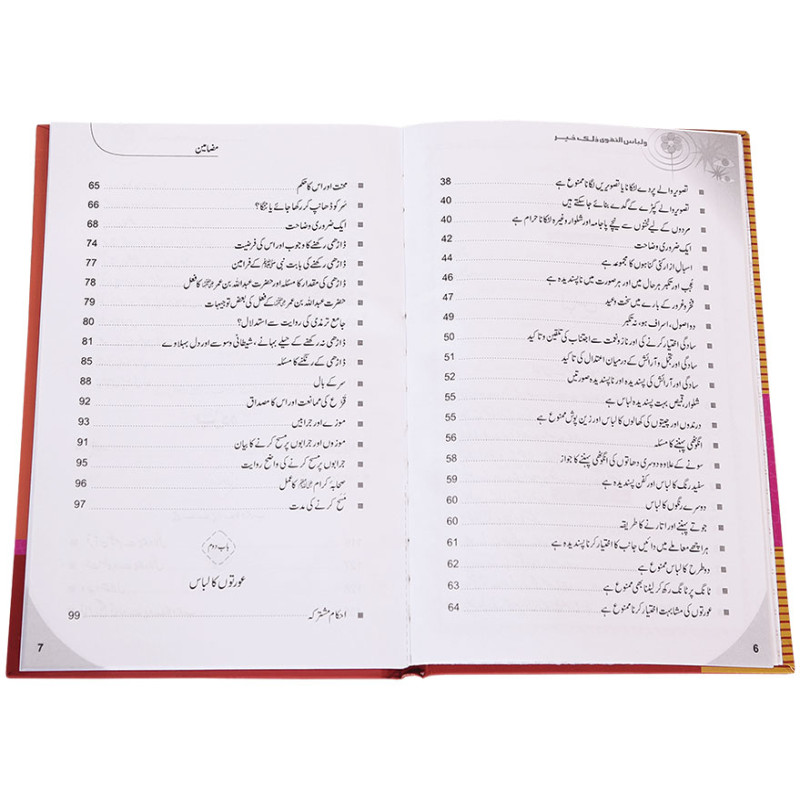 ولباس التقوى ذلك خير
تصویر والے پردے لٹکانا یا تصویریں لٹکانا ممنوع ہے 38
تصویر والے کپڑے کے گدے بنائے جاسکتے ہیں 40
مردوں کے لیے ٹخنوں سے نیچے پاجامہ اور شلوار وغیرہ لٹکانا حرام ہے 40
ایک ضروری وضاحت 42
اسبالِ ازار کئی گناہوں کا مجموعہ ہے 44
عُجب اور تکبر ہر حال میں اور ہر صورت میں ناپسندیدہ ہے 46
فخر و غرور کے بارے میں سخت وعید 47
دو اصول، اسراف ہو، نہ تکبر 49
سادگی اختیار کرنے کی اور ناز و نعمت سے اجتناب کی تلقین و تاکید 50
سادگی اور تجمل و آرائش کے درمیان اعتدال کی تاکید 51
سادگی اور آرائش کی پسندیدہ اور ناپسندیدہ صورتیں 52
شلوار قمیص بہت پسندیدہ لباس ہے 55
درندوں اور چیتوں کی کھالوں کا لباس اور زین پوش ممنوع ہے 55
انگوٹھی پہننے کا مسئلہ 56
سونے کے علاوہ دوسری دھاتوں کی انگوٹھی پہننے کا جواز 58
سفید رنگ کا لباس اور کفن پسندیدہ ہے 59
دوسرے رنگوں کا لباس 60
جوتے پہننے اور اتارنے کا طریقہ 60
ہر اچھے معاملے میں دائیں جانب کا اختیار کرنا پسندیدہ ہے 61
دو طرح کا لباس ممنوع ہے 62
ٹانگ پر ٹانگ رکھ کر لیٹنا بھی ممنوع ہے 63
عورتوں کی مشابہت اختیار کرنا ممنوع ہے 64
6
مضامین
مخنث اور اس کا حکم 65
سر کو ڈھانپ کر رکھا جائے یا ننگا؟ 66
ایک ضروری وضاحت 68
ڈاڑھی رکھنے کا وجوب اور اس کی فرضیت 74
ڈاڑھی رکھنے کی بابت نبی ﷺ کے فرامین 77
ڈاڑھی کی مقدار کا مسئلہ اور حضرت عبداللہ بن عمر کا فعل 78
حضرت عبداللہ بن عمر کے فعل کی بعض توجیہات 79
جامع ترمذی کی روایت سے استدلال؟ 80
ڈاڑھی نہ رکھنے کے حیلے بہانے، شیطانی وسوسے اور دل بہلاوے 81
ڈاڑھی کے رنگنے کا مسئلہ 85
سر کے بال 88
قزع کی ممانعت اور اس کا مصداق 92
موزے اور جرابیں 93
موزوں اور جرابوں پر مسح کرنے کا بیان 91
جرابوں پر مسح کرنے کی واضح روایت 95
صحابہ کرام کا عمل 96
مسح کرنے کی مدت 97
باب دوم
عورتوں کا لباس
احکام مشترکہ 99
7